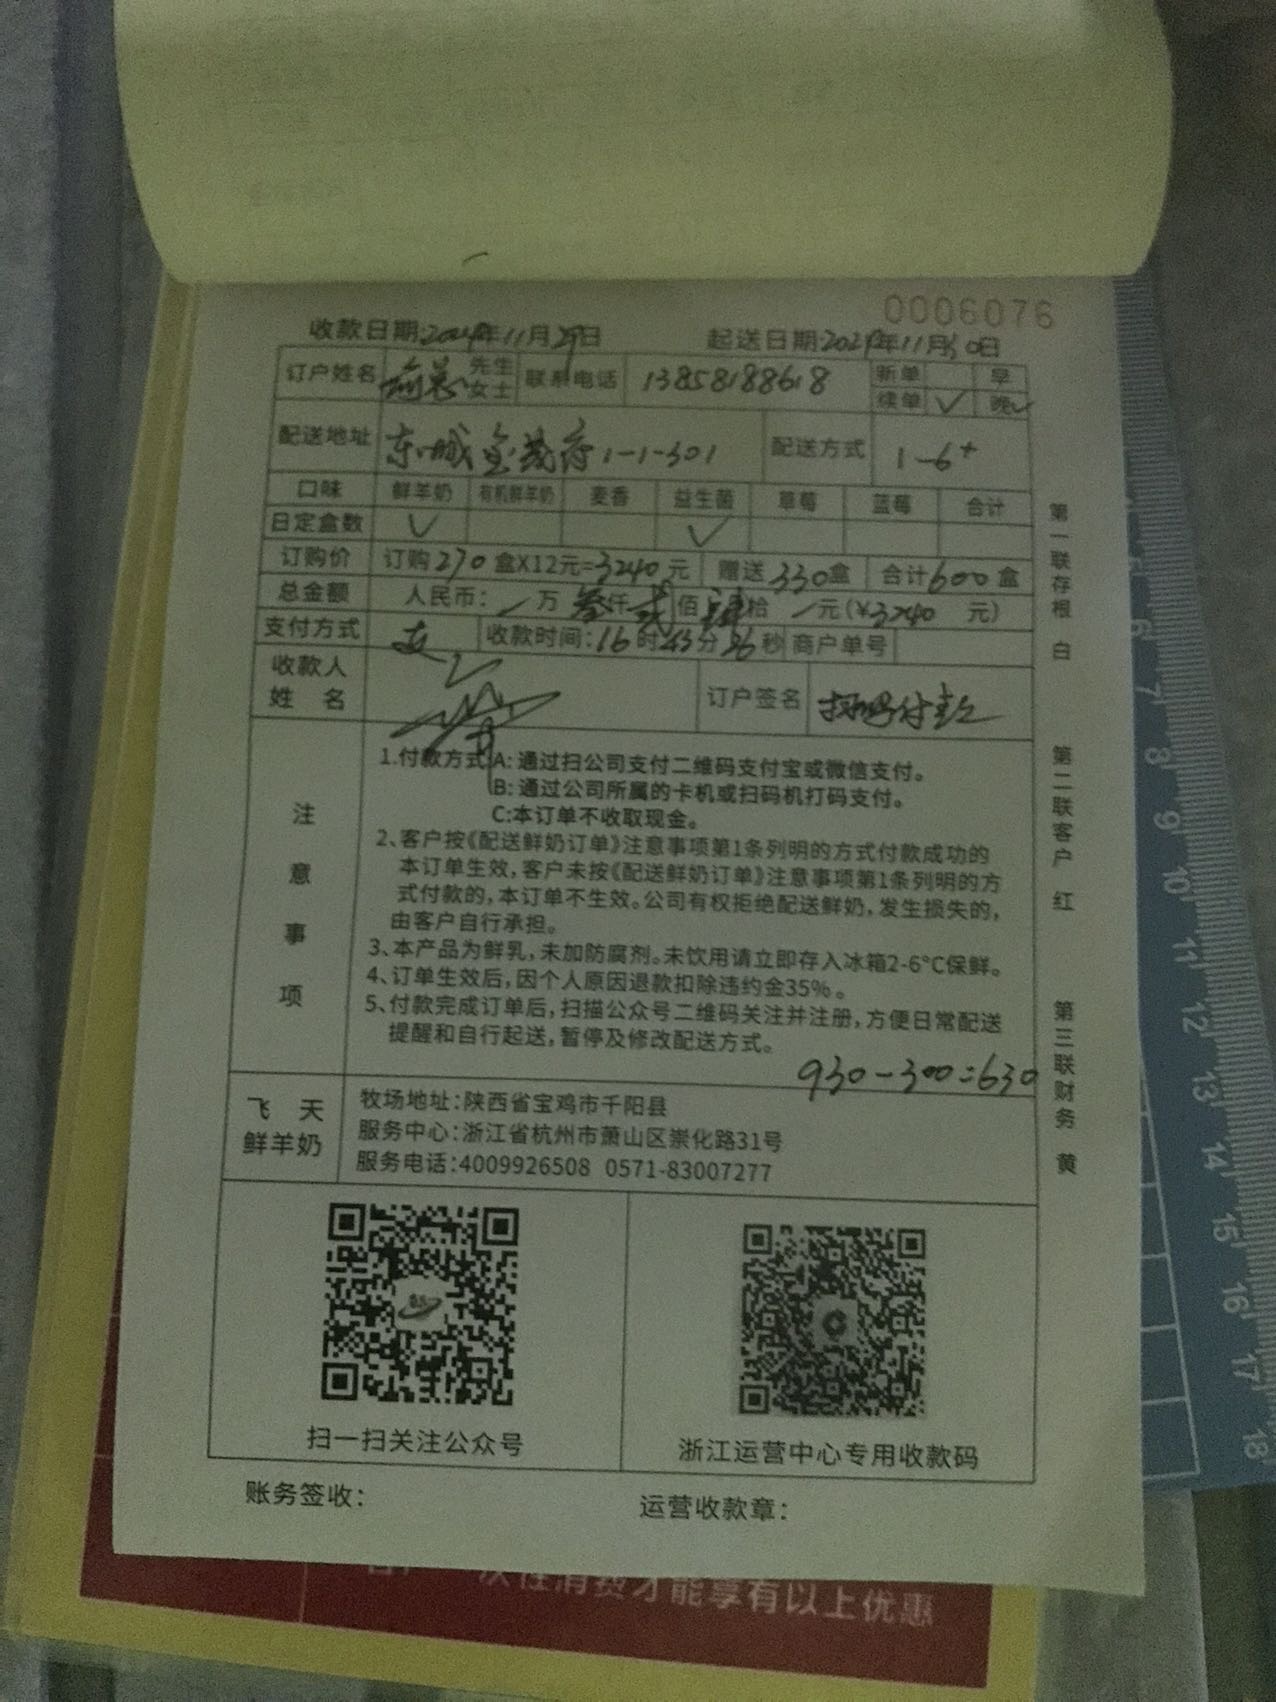 0006076
收款日期:2024年11月29日 起送日期2024年11月30日
订户姓名 先生 女士 联系电话 13858188618 新单 早
续单 ✓ 晚✓
配送地址 东城金茂府1-1-301 配送方式 1-6+
口味 鲜羊奶 有机鲜羊奶 麦香 益生菌 草莓 蓝莓 合计
日定盒数 ✓ ✓
订购价 订购270盒X12元=3240元 赠送330盒 合计600盒
总金额 人民币: 万叁仟贰佰肆拾 元(¥3240 元)
支付方式 收款时间:16时43分36秒 商户单号
收款人姓名 订户签名 扫码付款
注意事项
1.付款方式 A: 通过扫公司支付二维码支付宝或微信支付。
B: 通过公司所属的卡机或扫码机打码支付。
C:本订单不收取现金。
2、客户按《配送鲜奶订单》注意事项第1条列明的方式付款成功的
本订单生效,客户未按《配送鲜奶订单》注意事项第1条列明的方
式付款的,本订单不生效。公司有权拒绝配送鲜奶,发生损失的,
由客户自行承担。
3、本产品为鲜乳,未加防腐剂。未饮用请立即存入冰箱2-6°C保鲜。
4、订单生效后,因个人原因退款扣除违约金35%。
5、付款完成订单后,扫描公众号二维码关注并注册,方便日常配送
提醒和自行起送,暂停及修改配送方式。
930-300=630
飞天
鲜羊奶
牧场地址:陕西省宝鸡市千阳县
服务中心:浙江省杭州市萧山区崇化路31号
服务电话:4009926508 0571-83007277
扫一扫关注公众号 浙江运营中心专用收款码
账务签收: 运营收款章:
第一联存根 白
第二联客户 红
第三联财务 黄
次性消费才能享有以上优惠
6
7
8
9
10
11
12
13
14
15
16
17
18